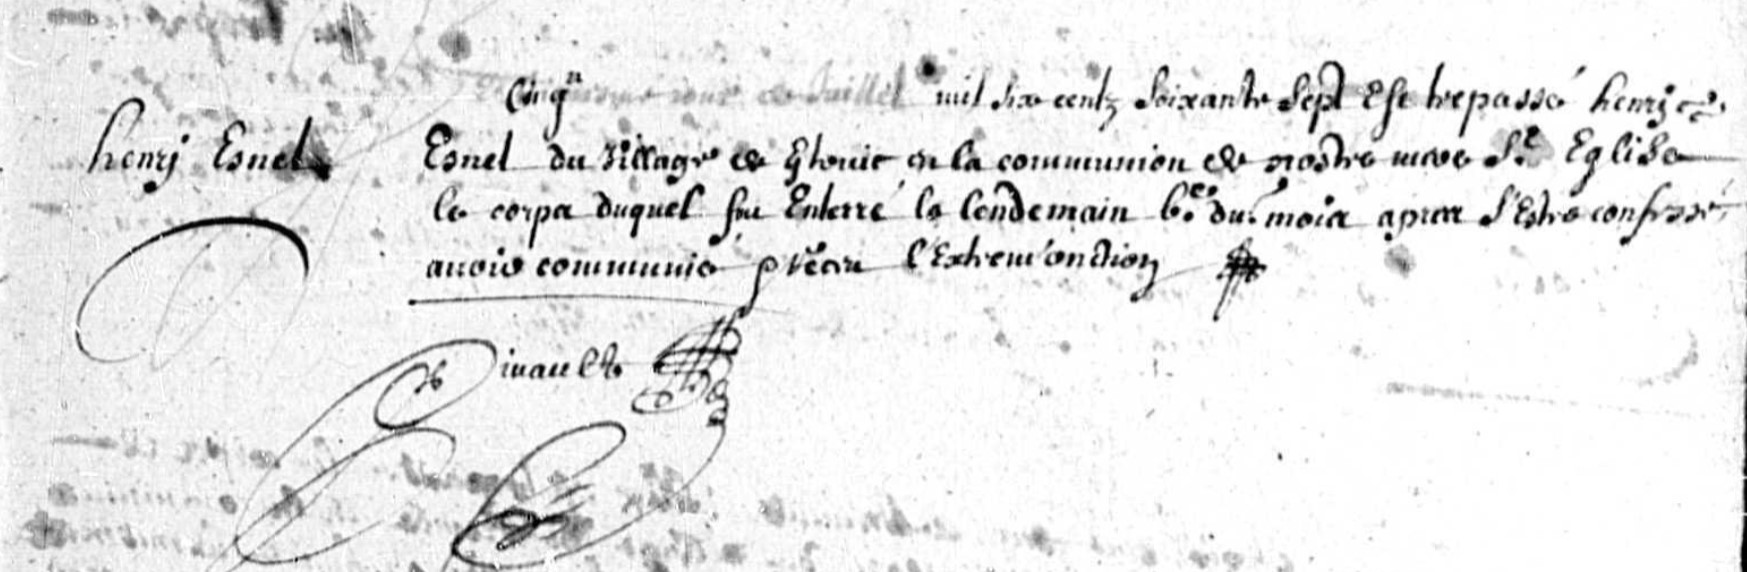 Cinqn jour de Juillet mil six centz Soixante Sept Est trepassé henrj
henrj Esnel
Esnel du village de en la communion de nostre mere Ste Eglise
le corps duquel fut Enterré le lendemain 6e du mois apres s'Estre confessé
avoir communié & receu l'Extrem'onction